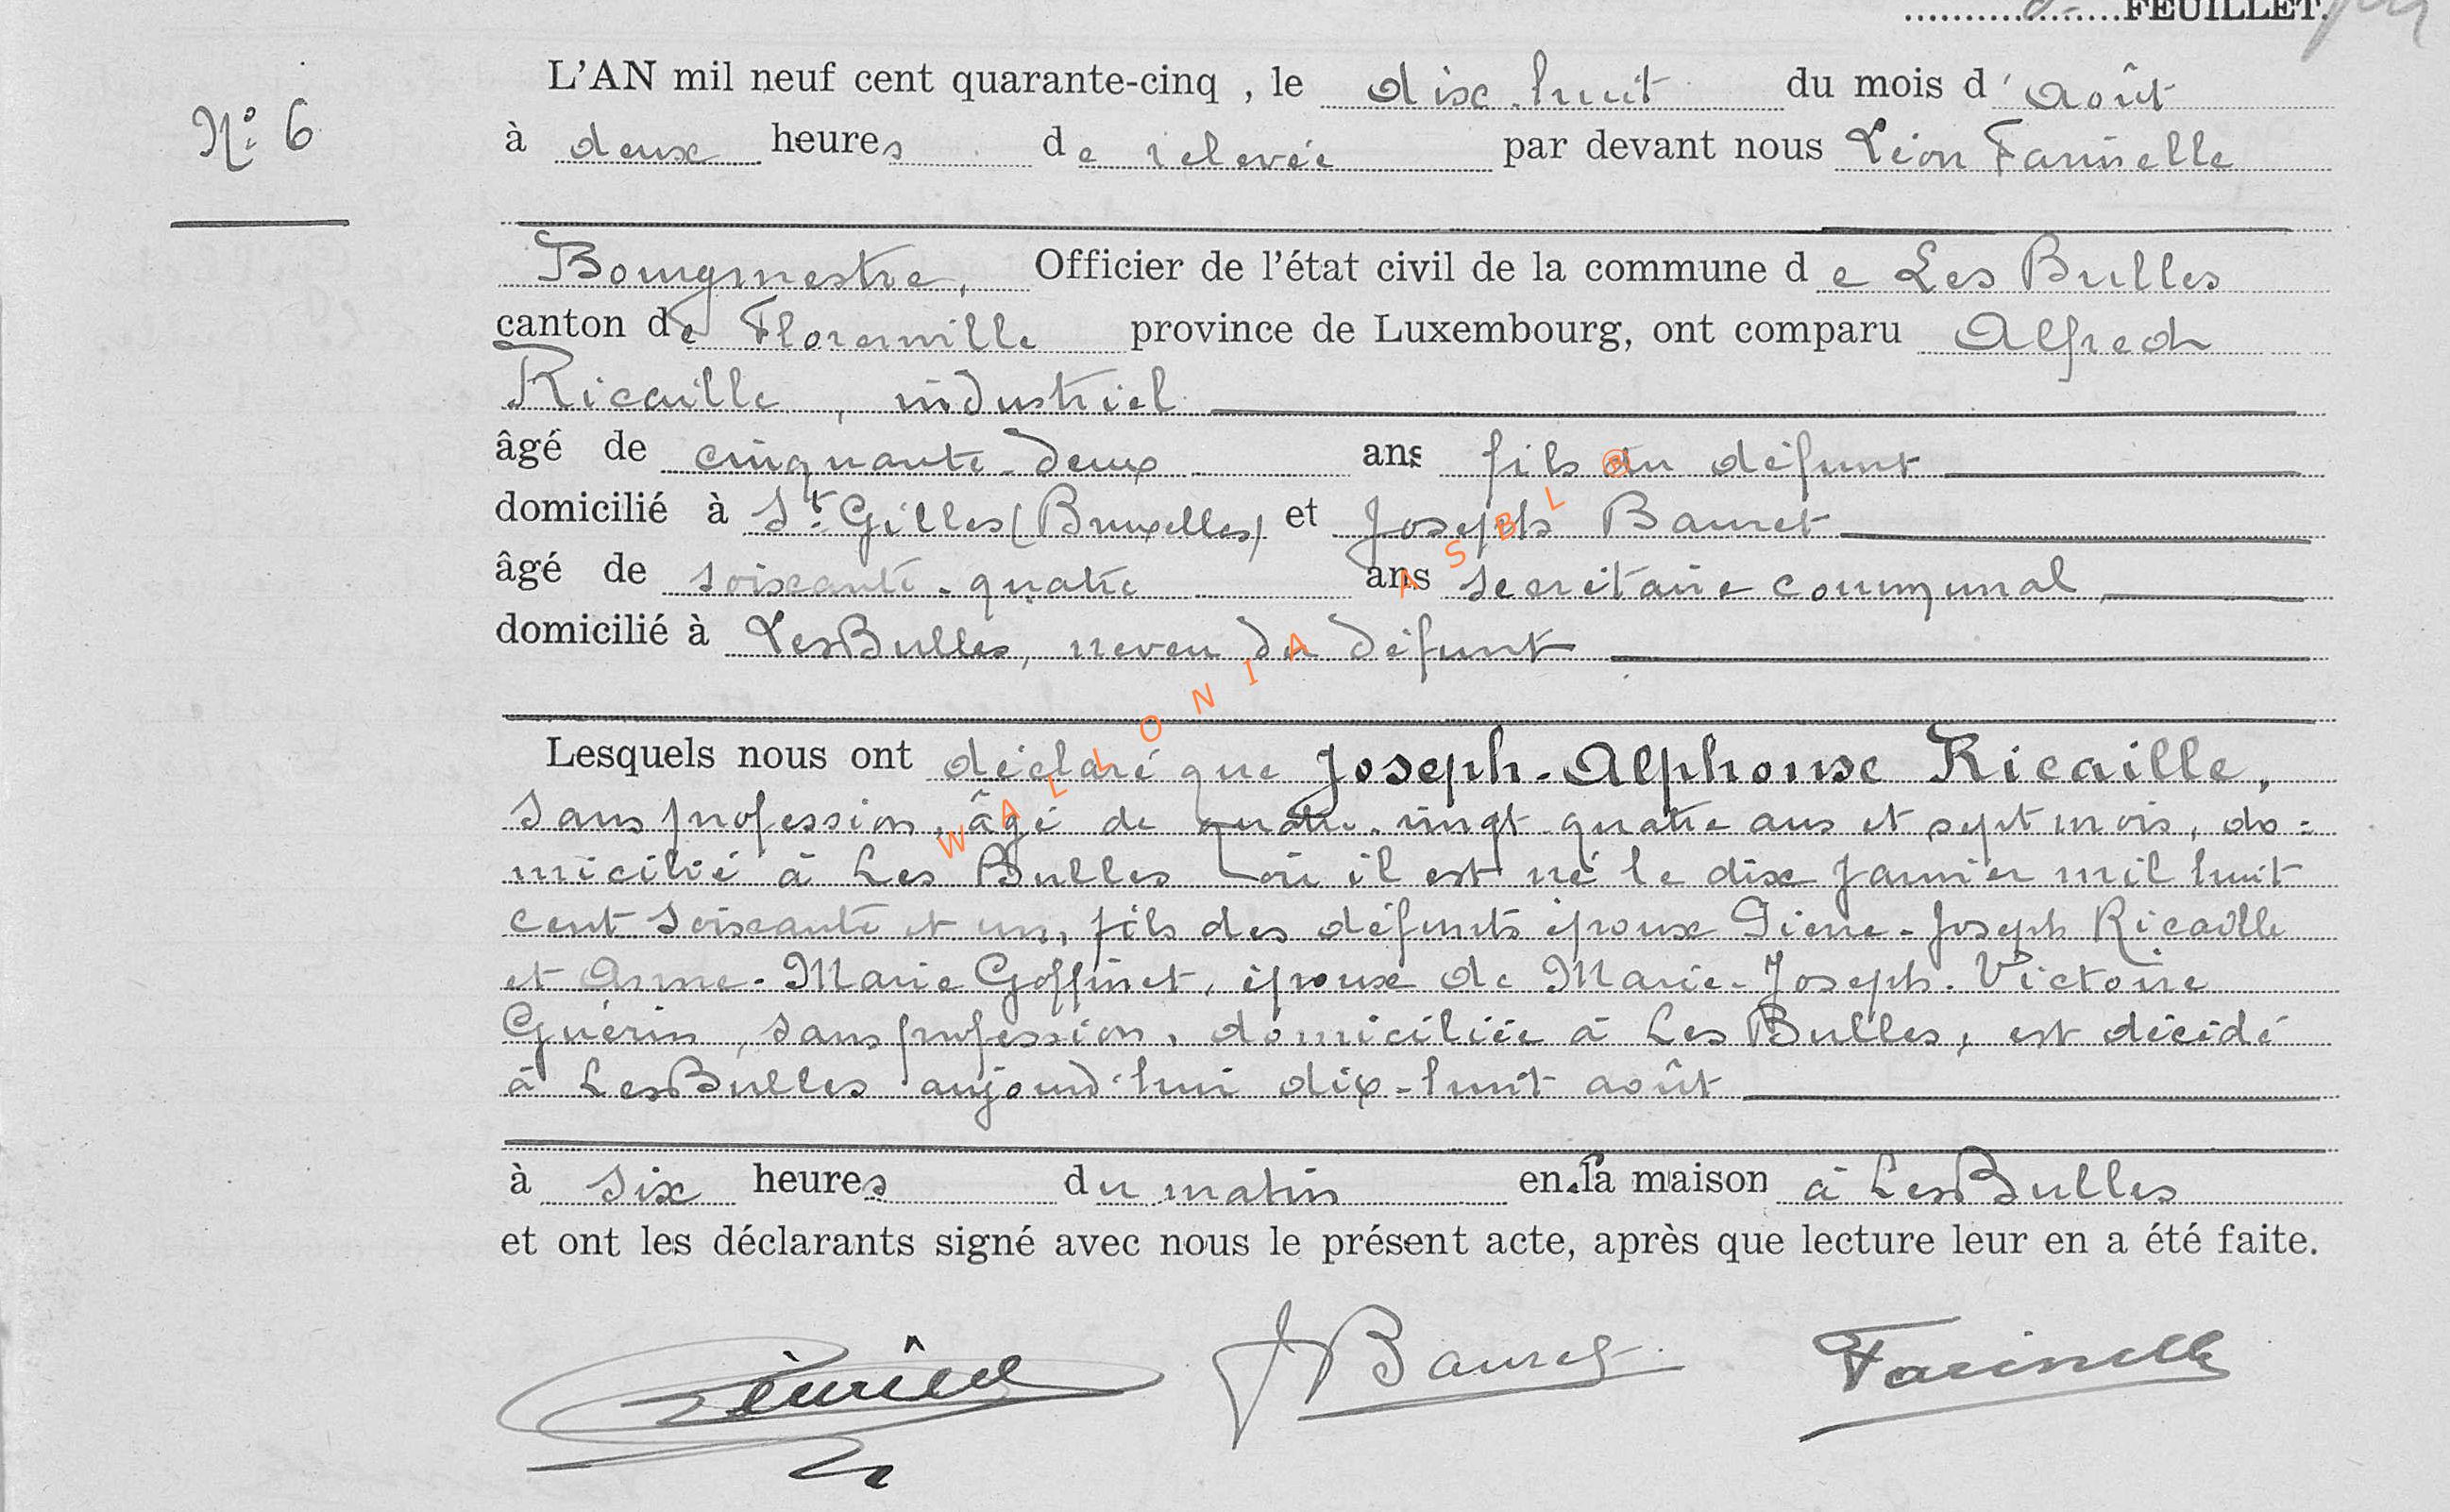 FEUILLET.
L'AN mil neuf cent quarante-cinq , le dix-huit du mois d'août
N° 6
à deux heures de relevée par devant nous Léon Farinelle
Bourgmestre, Officier de l'état civil de la commune de Les Bulles
canton de Florenville province de Luxembourg, ont comparu Alfred
Ricaille, industriel
âgé de cinquante-deux ans fils du défunt
domicilié à St Gilles (Bruxelles) et Joseph Bauret
âgé de soixante-quatre ans secrétaire communal,
domicilié à Les Bulles, neveu du défunt
Lesquels nous ont déclaré que Joseph-Alphonse Ricaille,
sans profession, âgé de quatre-vingt-quatre ans et sept mois, do=
micilié à Les Bulles où il est né le dix janvier mil huit
cent soixante et un, fils des défunts époux Pierre-Joseph Ricaille
et Anne-Marie Goffinet, époux de Marie-Joseph-Victoire
Guérin, sans profession, domiciliée à Les Bulles, est décédé
à Les Bulles aujourd'hui dix-huit août
à six heures du matin en la maison à Les Bulles
et ont les déclarants signé avec nous le présent acte, après que lecture leur en a été faite.
J Bauret Farinelle
WALLONIA ASBL ®